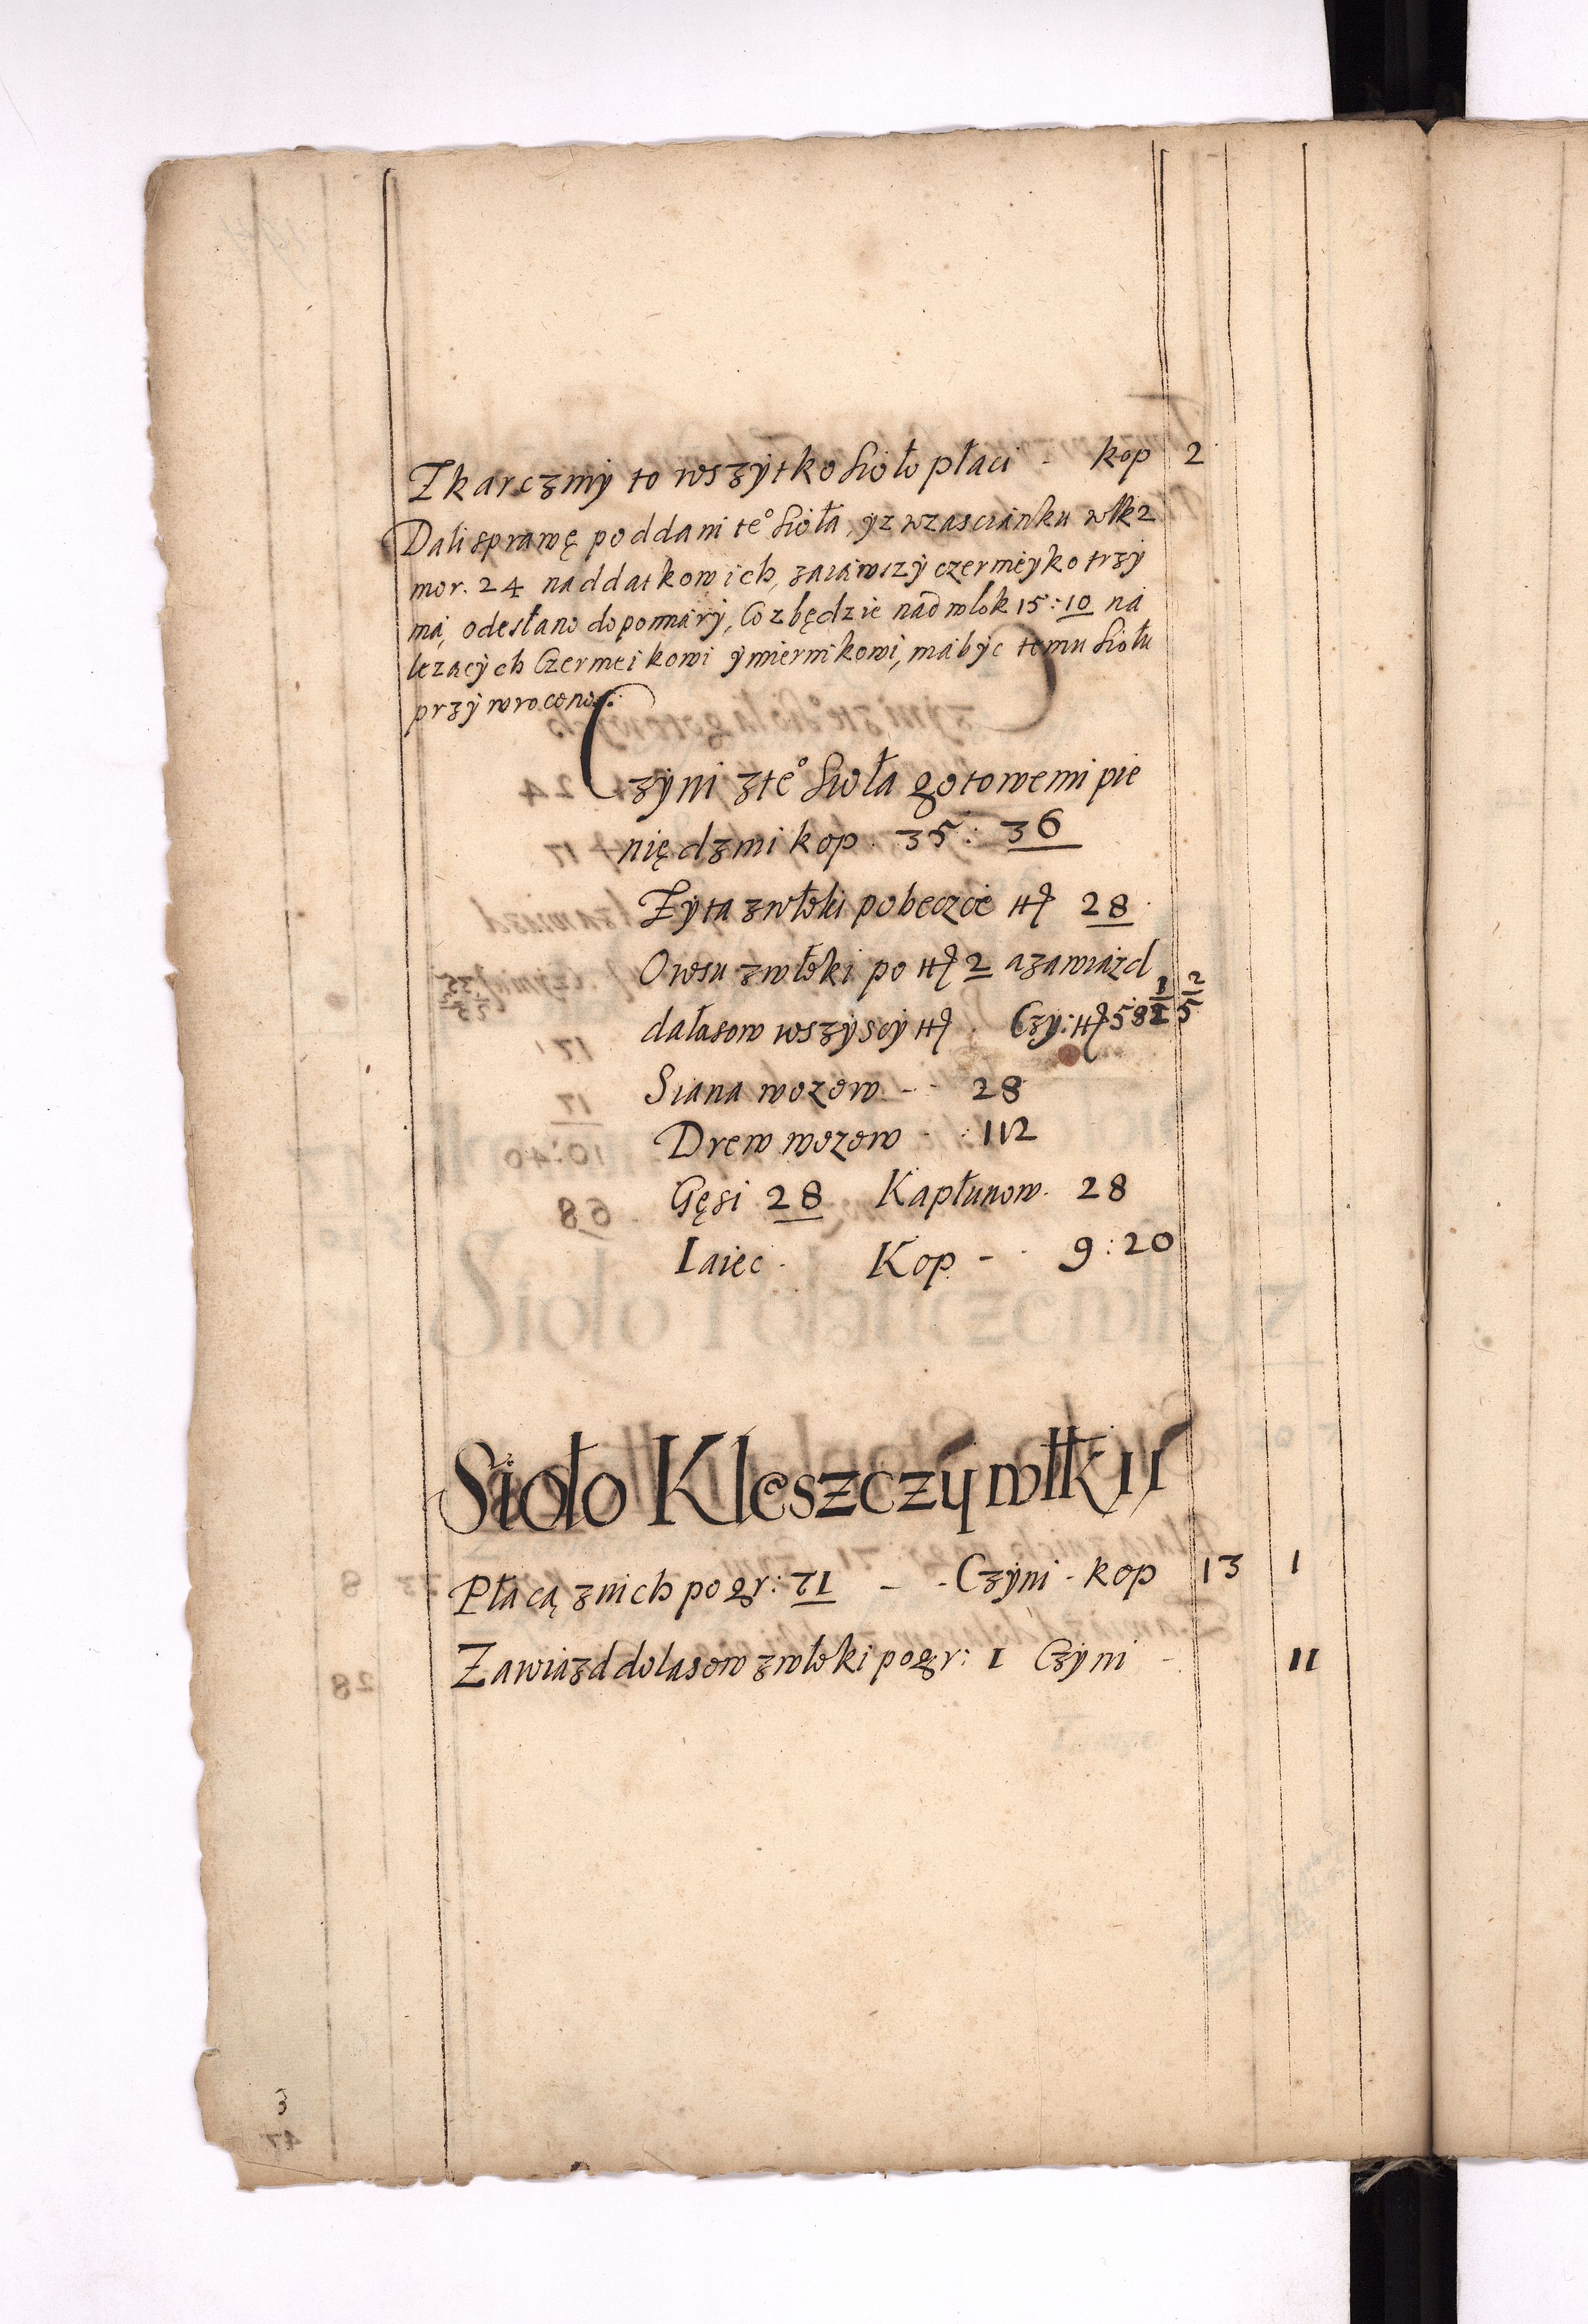 Zkarczmÿ to wszÿtko sioło płaci - kop 2
Dali sprawę poddani te° sioła, ÿz wzascianku włk 2
mor. 24 naddatkowich, zaiąwszÿ czermeyko trzÿ
ma, odesłano do pomiarÿ, Co zbędzie nad włok 15: 10 na
lezącÿch Czermeikowi ÿ miernikowi, ma bÿc temu siołu
przÿwrocono:
Czÿni zte° sioła gotowemi pie
niędzmi kop. 35: 36
Zyta zwłoki pobeczce 28
Owsu zwłoki po 2 azawiazd
dałasow wszÿscÿ Czy: 58
Siana wozow - - 28
Drew wozow - : 112
Gęsi 28 Kapłunow. 28
Iaiec - Kop - - 9: 20
Sioło Kleszczÿ włk 11
Płacą znich pogr: 71 - - Czÿni - kop 13 1
Zawiazd dolasow zwłoki pogr: 1 Czÿni - 11
3